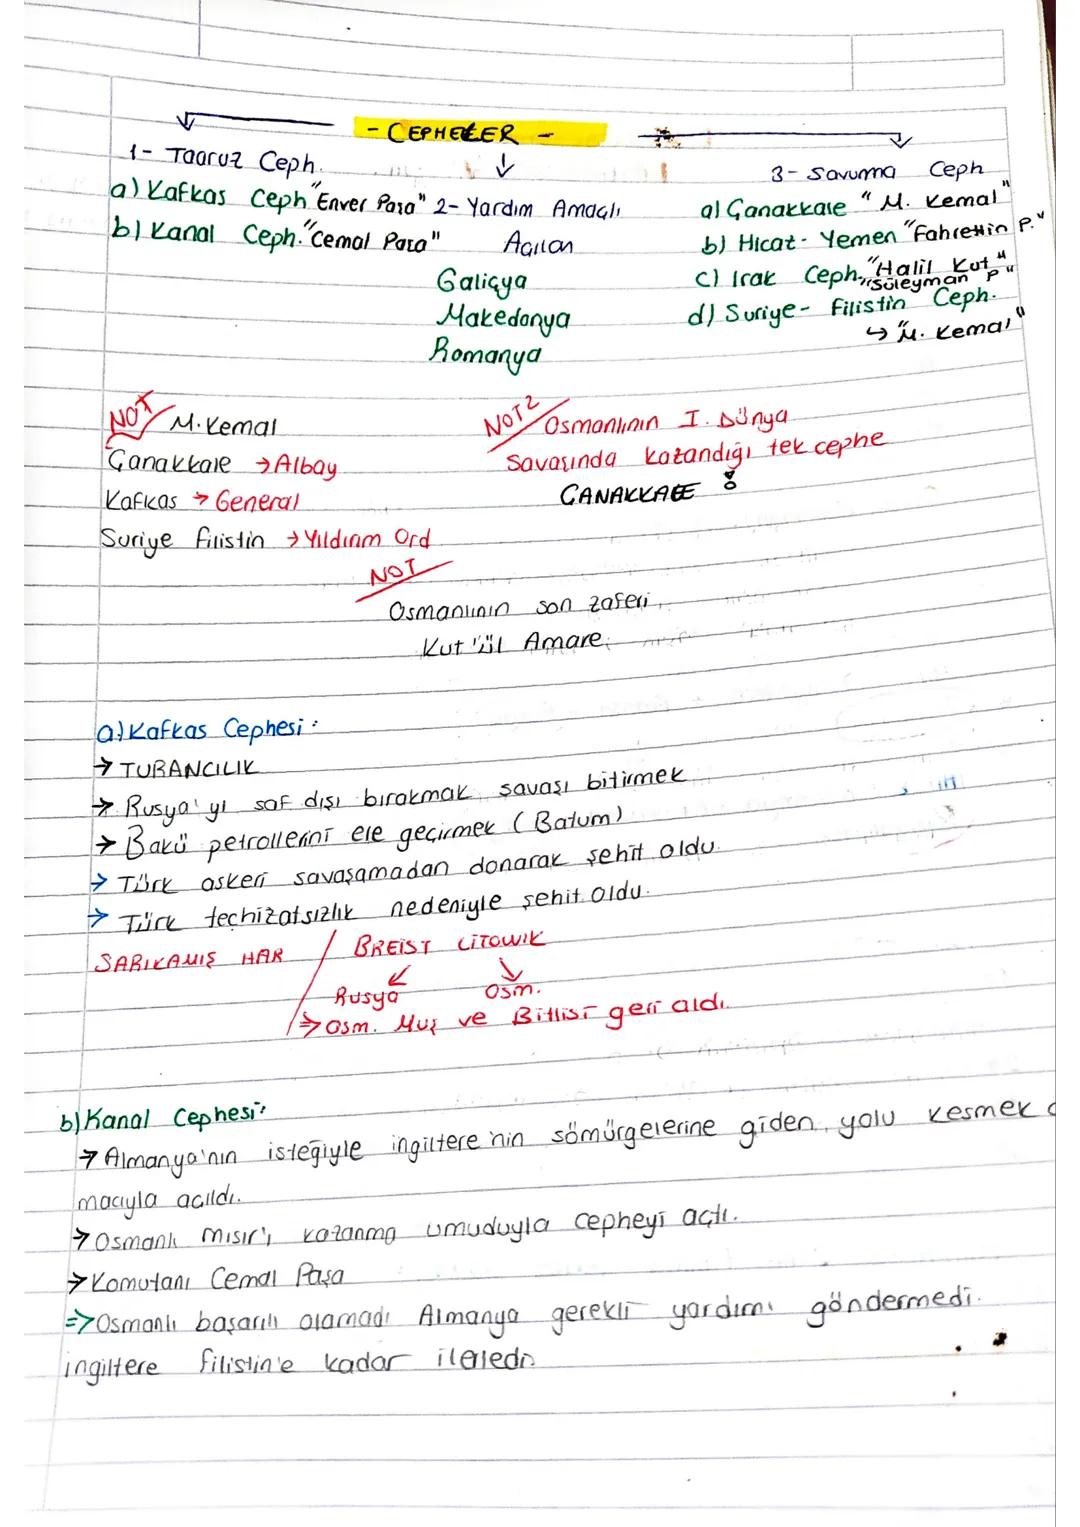 - CEPHELER -
1- Taaruz Ceph.
a) Kafkas Ceph "Enver Paşa"
b) Kanal Ceph. "Cemal Paşa"
2- Yardım Amaçlı
Açılan
Galiçya
Makedonya
Romanya
3- Savunma Ceph
a) Çanakkale "M. Kemal"
b) Hicaz- Yemen "Fahrettin P."
c) Irak Ceph. "Halil Kut"
"Süleyman P"
d) Suriye- Filistin Ceph.
↳ "M. Kemal"
NOT M. Kemal
Çanakkale → Albay
Kafkas → General
Suriye filistin → Yıldırım Ord
NOT2 Osmanlının I. Dünya
Savaşında kazandığı tek cephe
ÇANAKKALE !
NOT
Osmanlının son zaferi
Kut'ül Amare
a) Kafkas Cephesi:
→ TURANCILIK
→ Rusya'yı saf dışı bırakmak savaşı bitirmek
→ Bakü petrollerini ele geçirmek (Batum)
→ Türk askeri savaşamadan donarak şehit oldu.
→ Türk teçhizatsızlık nedeniyle şehit oldu.
SARIKAMIŞ HAR / BREIST LİTOWIK
Rusya Osm.
→ Osm. Muş ve Bitlisi geri aldı.
b) Kanal Cephesi:
→ Almanya'nın isteğiyle ingiltere'nin sömürgelerine giden yolu kesmek a
macıyla açıldı.
→ Osmanlı Mısır'ı kazanma umuduyla cepheyi açtı.
→ Komutanı Cemal Paşa
⇒ Osmanlı başarılı olamadı Almanya gerekli yardımı göndermedi.
ingiltere filistin'e kadar ilerledi